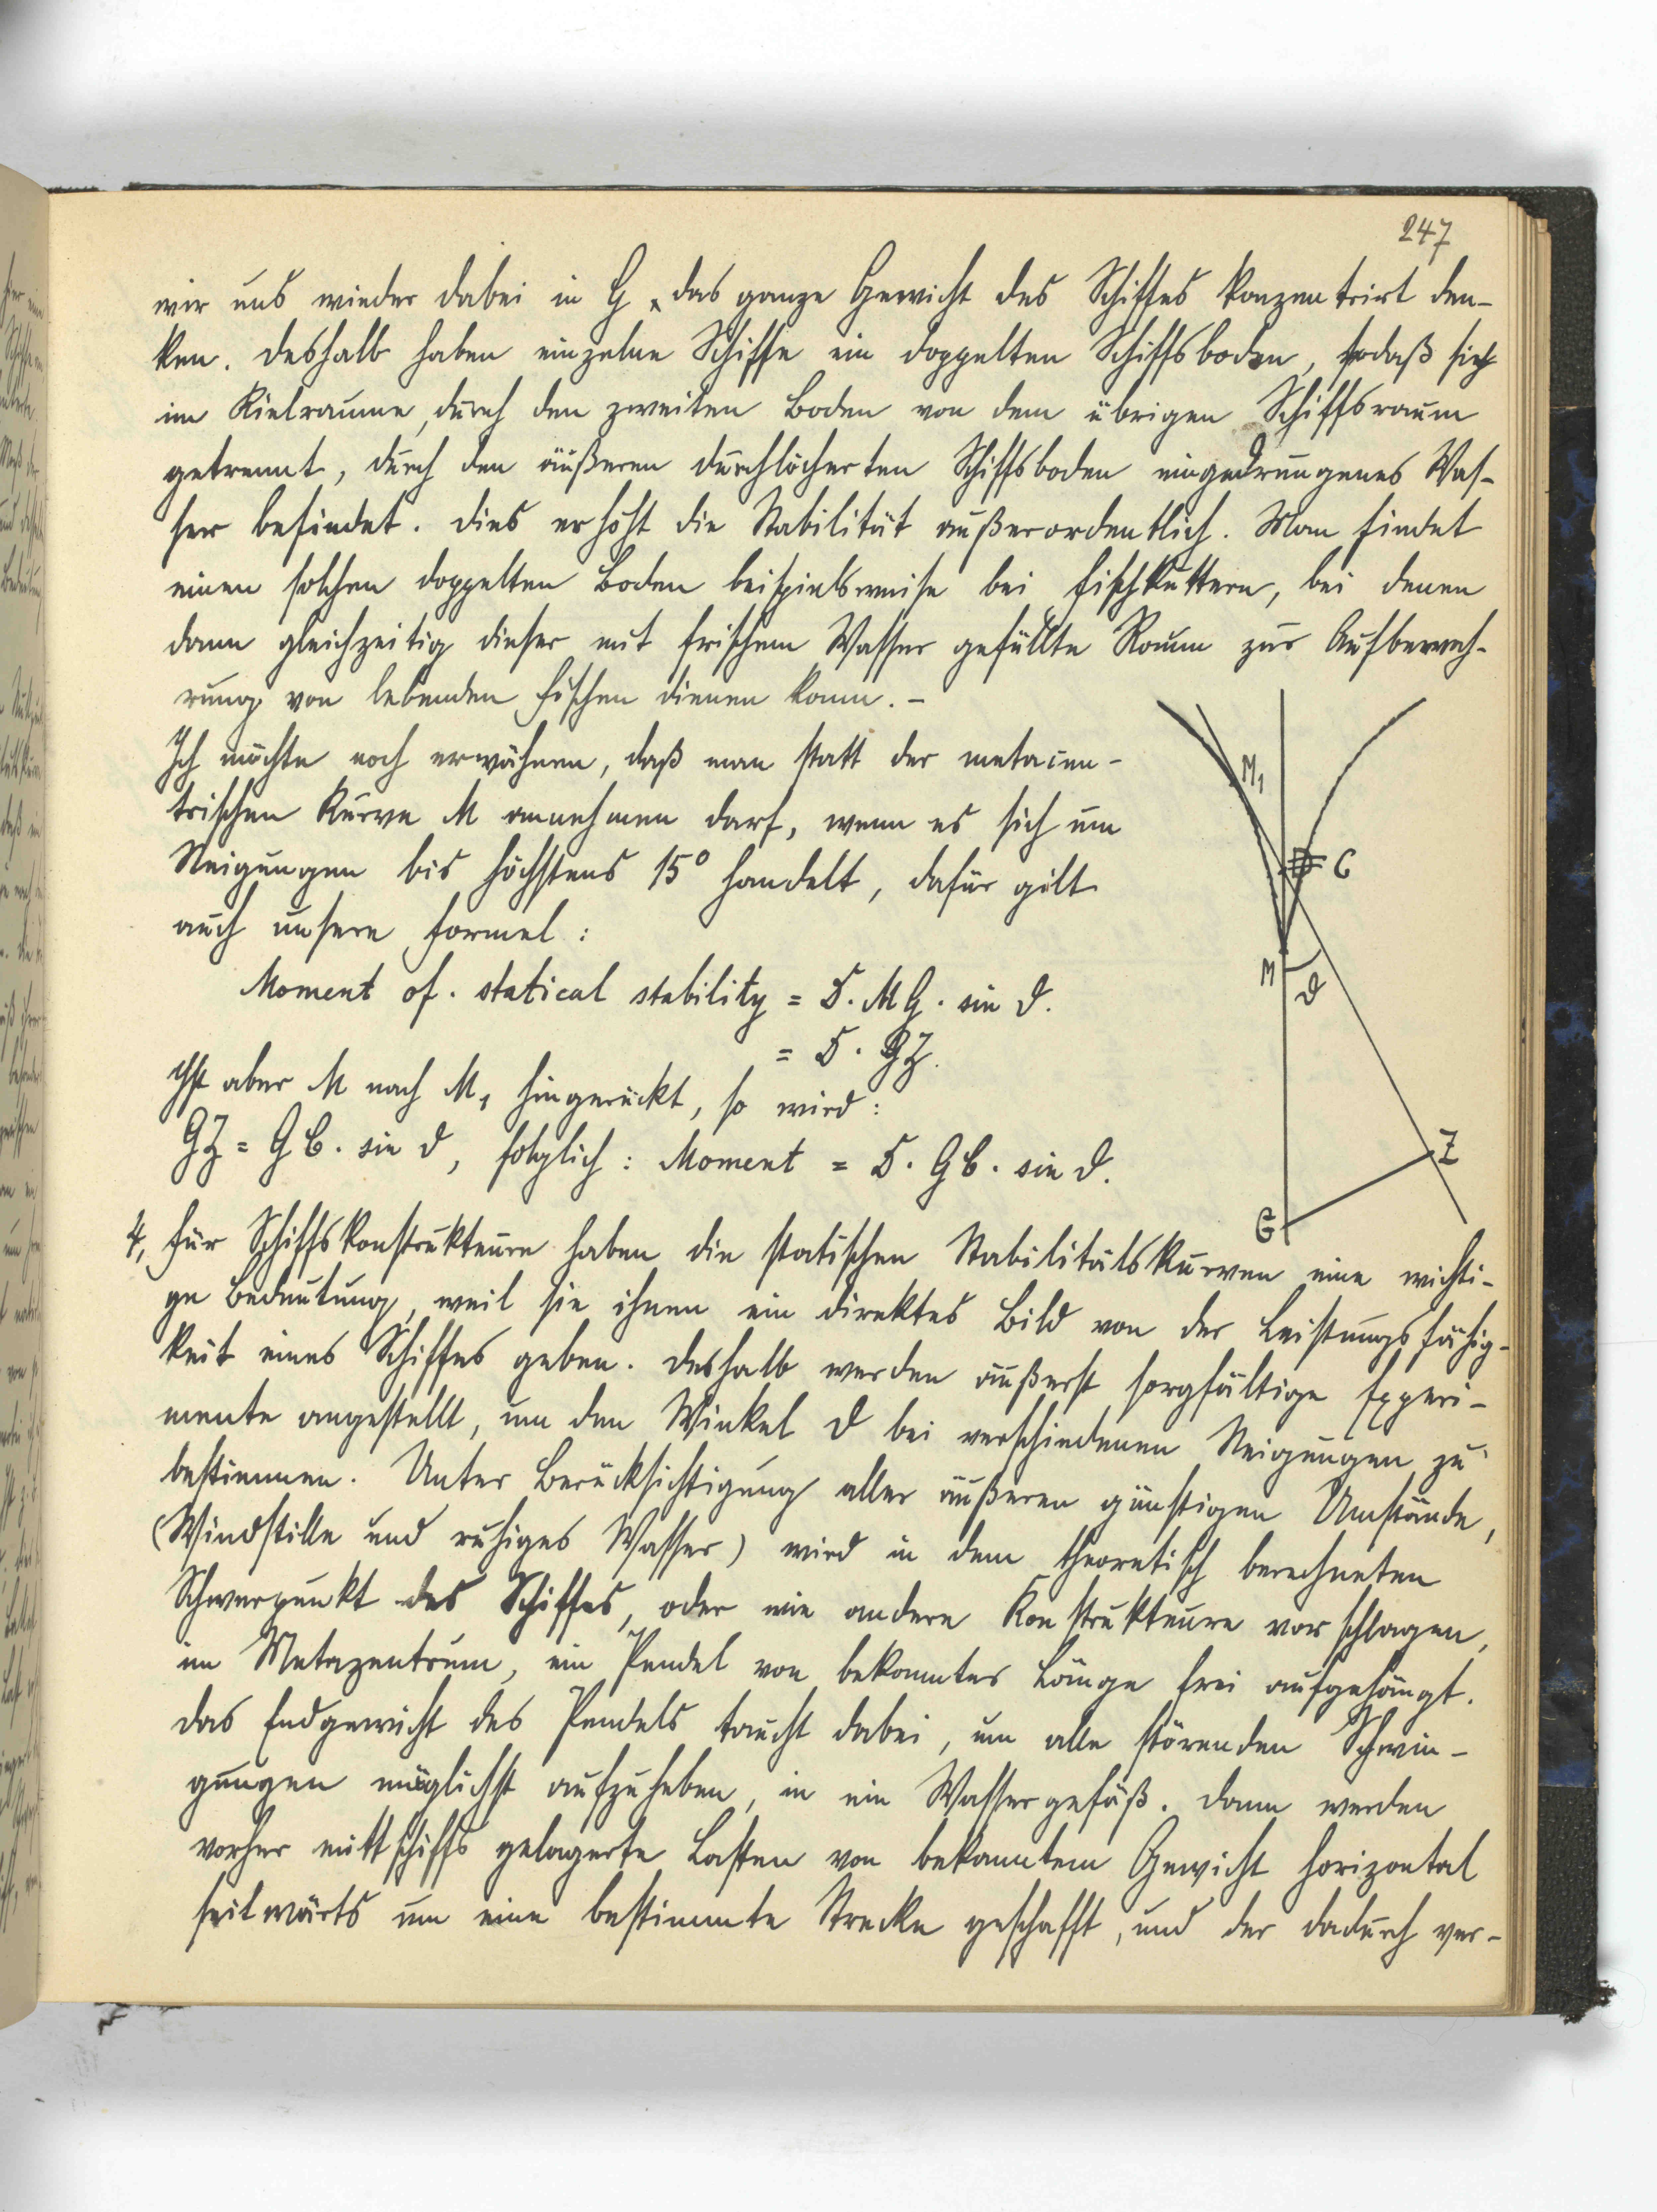 247
wir uns wieder dabei in G das ganze Gewicht des Schiffes konzentrirt den-
ken. Deshalb haben einzelne Schiffe ein doppelten Schiffsboden, sodaß sich
im Kielraume, durch den zweiten Boden von dem übrigen Schiffsraum
getrennt, durch den äußeren durchlöcherten Schiffsboden eingedrungenes Was-
ser befindet. Dies erhöht die Stabilität außerordentlich. Man findet
einen solchen doppelten Boden beispielsweise bei Fischkuttern, bei denen
dann gleichzeitig dieser mit frischem Wasser gefüllte Raum zur Aufbewah-
rung von lebenden Fischen dienen kann. –
Ich möchte noch erwähnen, daß man statt der metacen-
trischen Kurve M annehmen darf, wenn es sich um
Neigungen bis höchstens 15° handelt, dafür gilt
auch unsere Formel:
Moment of. statical stability = D. MG. sin ϑ.
= D. GZ.
Ist aber M nach M₁ hingerückt, so wird:
GZ = GC. sin ϑ, folglich: Moment = D. GC. sin ϑ.
M₁
C
M
ϑ
Z
G
4, Für Schiffskonstrukteure haben die statischen Stabilitätskurven eine wichti-
ge Bedeutung, weil sie ihnen ein direktes Bild von der Leistungsfähig-
keit eines Schiffes geben. Deshalb werden äußerst sorgfältige Experi-
mente angestellt, um den Winkel ϑ bei verschiedenen Neigungen zu
bestimmen. Unter Berücksichtigung aller äußeren günstigen Umstände,
(Windstille und ruhiges Wasser) wird in dem theoretisch berechneten
Schwerpunkt des Schiffes, oder wie andere Konstrukteure vorschlagen,
im Metazentrum, ein Pendel von bekannter Länge frei aufgehängt.
Das Endgewicht des Pendels taucht dabei, um alle störenden Schwin-
gungen möglichst aufzuheben, in ein Wassergefäß. Dann werden
vorher mittschiffs gelagerte Lasten von bekanntem Gewicht horizontal
seitwärts um eine bestimmte Strecke geschafft, und der dadurch ver-